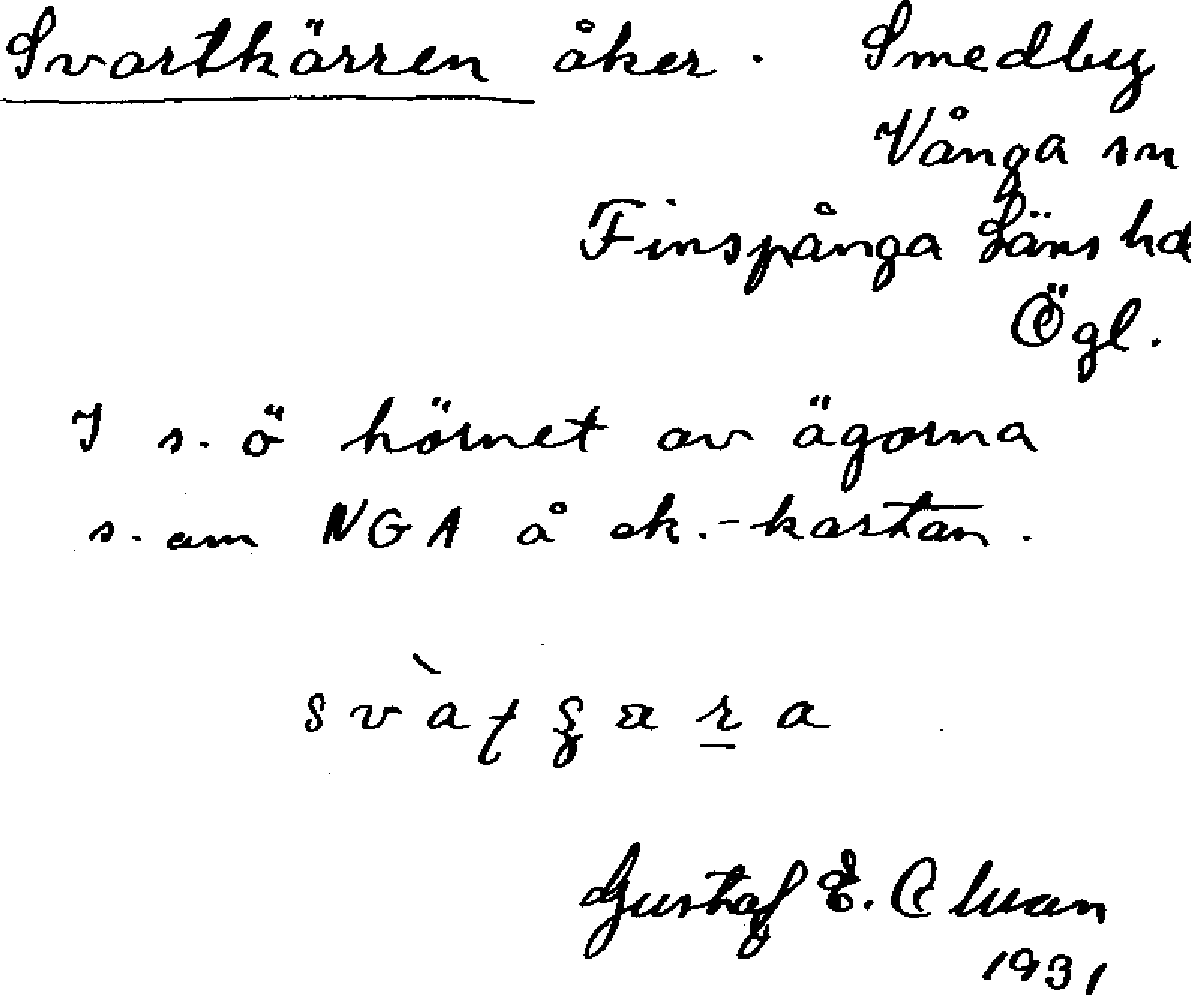 Svartkärren åker. Smedby
Vånga sn
Finspånga Läns hd
Ögl.
I s. ö hörnet av ägorna
s. om NGA å ek.-kartan.
Gustaf E.
1931